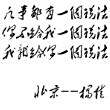 凡事都有一個說法
你不给我一個說法
我就给你一個說法
北京——楊恒